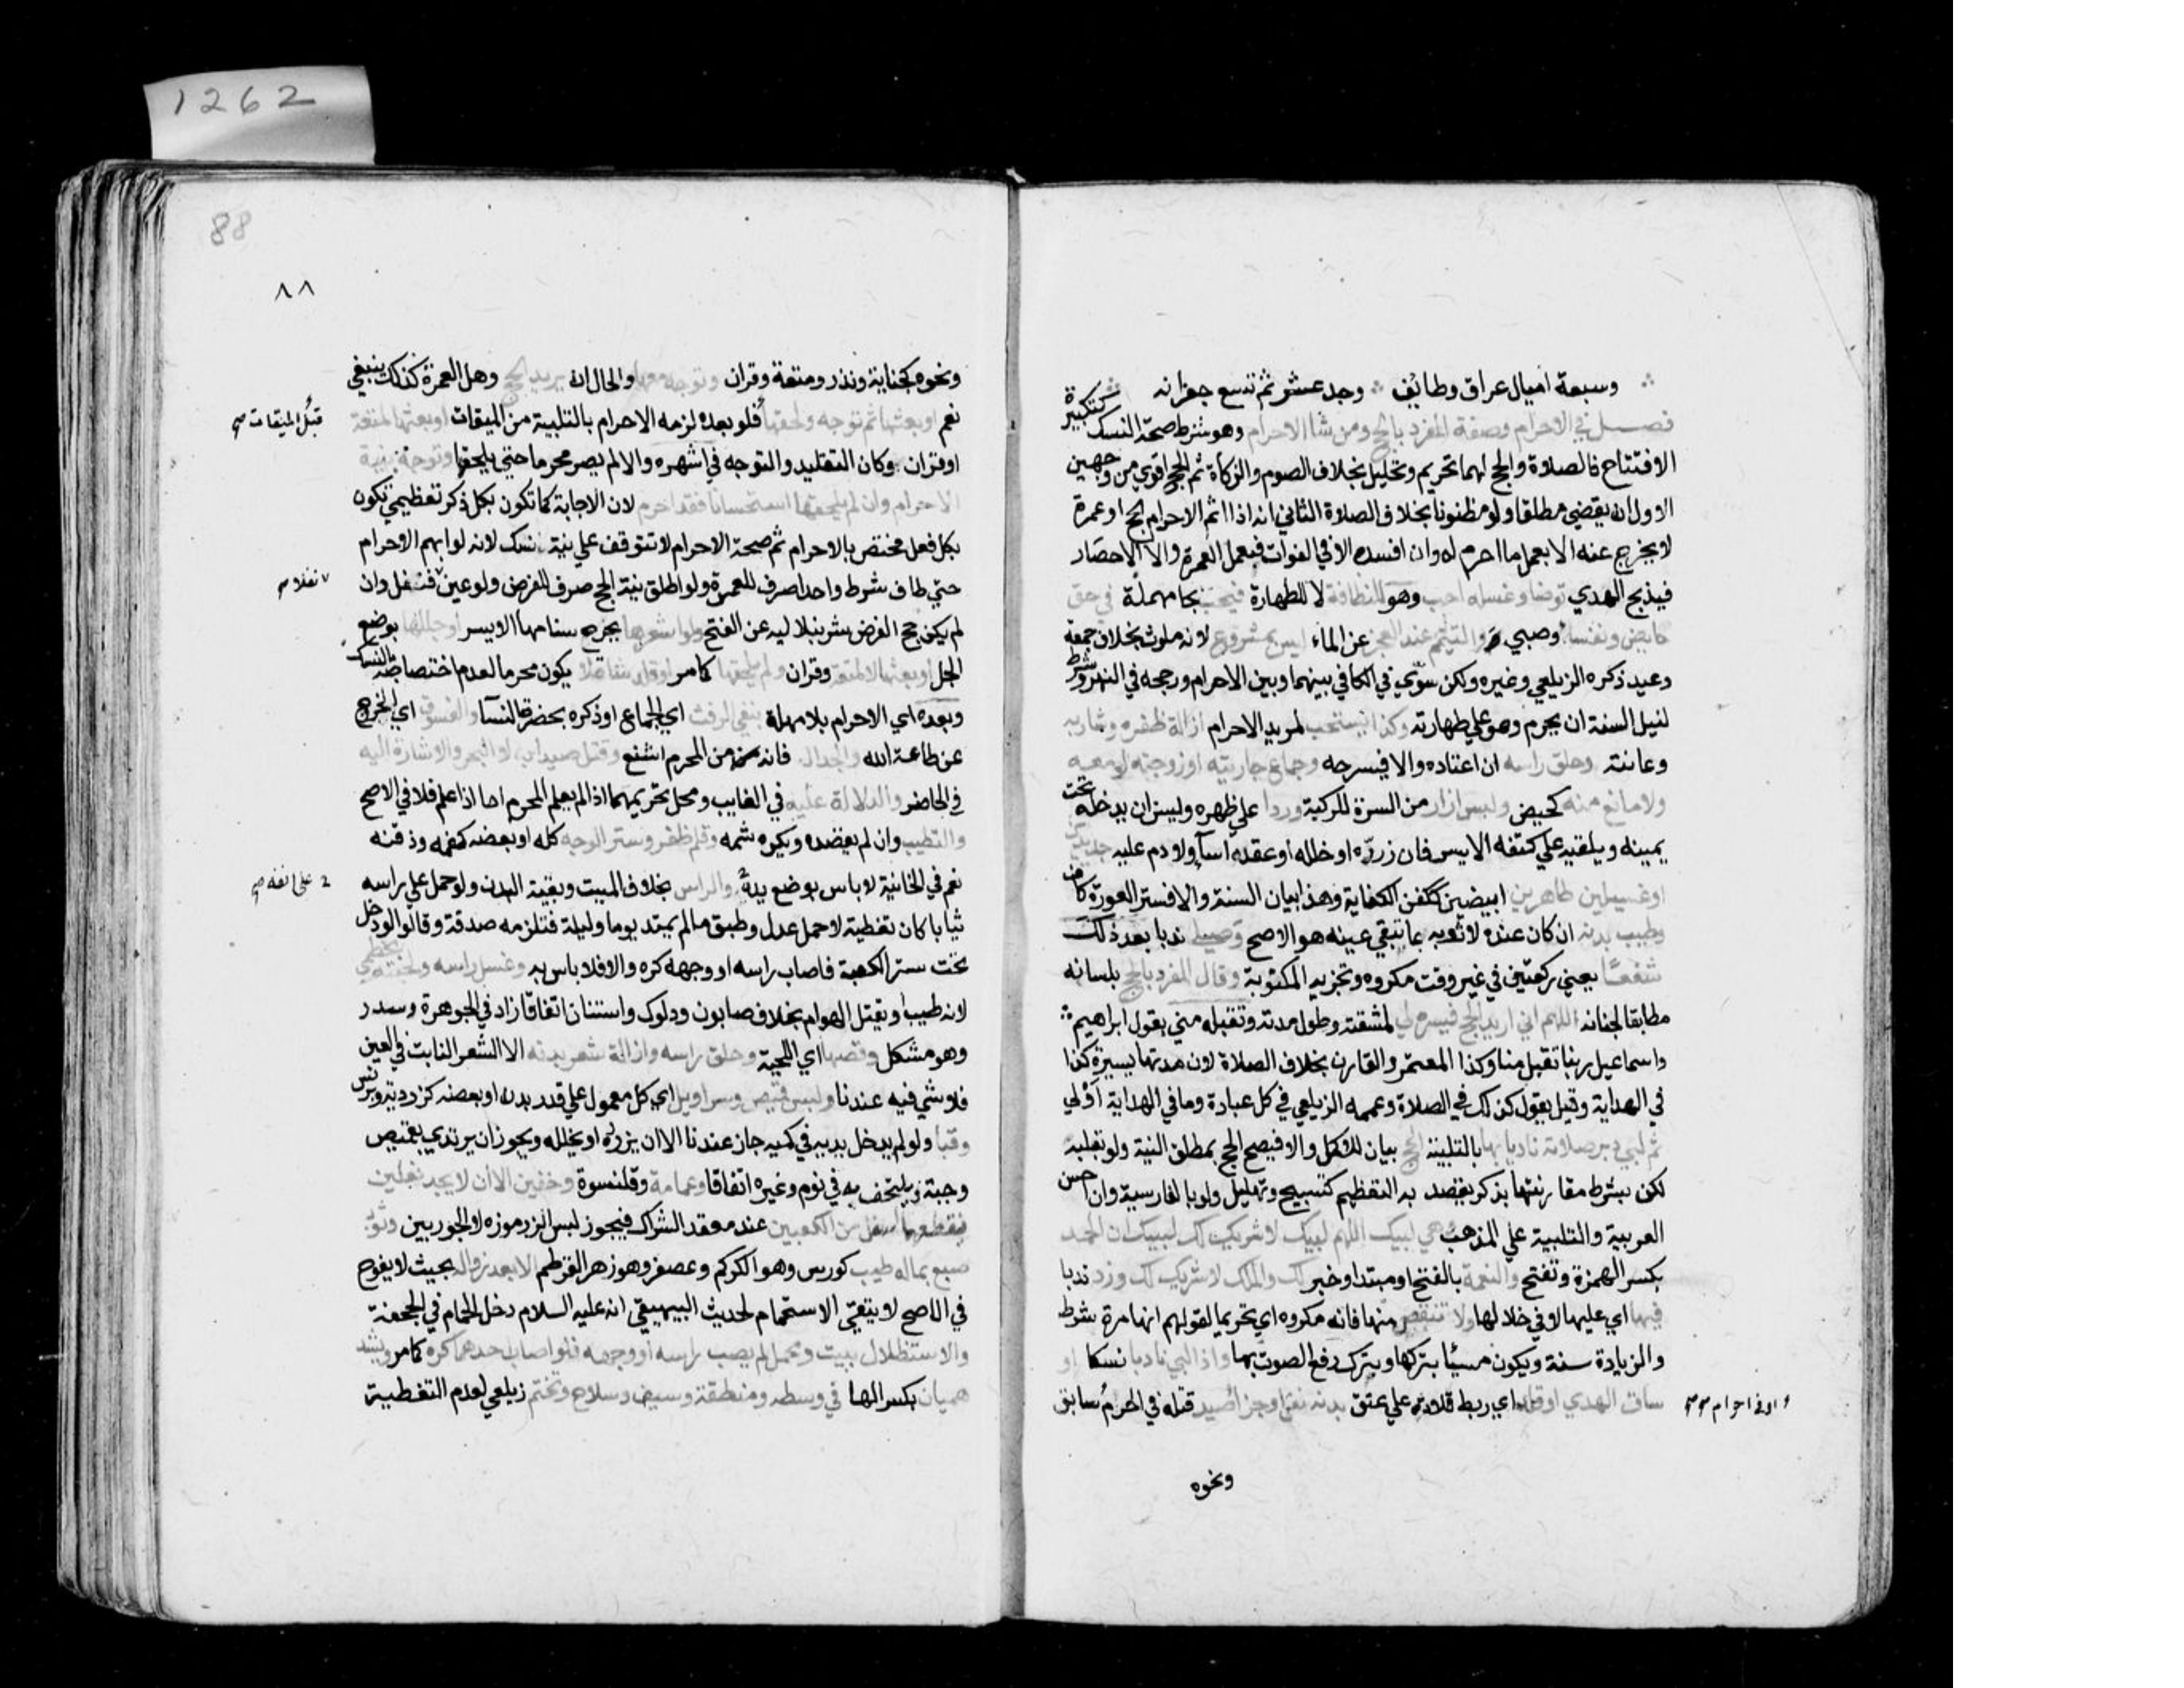 وسبعة اميال عراق وطائف ∴ وجد عشر ثم تسع جعرانه
فصل في الاحرام وصفة المفرد بالحج ومن شا الاحرام وهو شرط صحة النسك كتكبيرة
الافتتاح فالصلاة والحج لهما تحريم وتحليل بخلاف الصوم والزكاة ثم الحج اقوي من وجهين
الاول انه يقضي مطلقا ولو مظنونا بخلاف الصلاة الثاني انه اذا اتم الاحرام لحج او عمرة
لا يخرج عنه الا بعمل ما احرم له وان افسده الا في الفوات فبعمل العمرة والا الاحصار
فبذبح الهدي توضا وغسله احب وهو للنظافة لا للطهارة فيحب بحا مهملة في حق
حايض ونفسا وصبي والتيمم عند العجز عن الماء ليس بمشروع لانه ملوث بخلاف جمعة
وعيد ذكره الزيلعي وغيره ولكن سوي في الكافي بينهما وبين الاحرام ورجحه في النهر وشرط
لنيل السنة ان يحرم وهو علي طهارته وكذا يستحب لمريد الاحرام ازالة ظفره وشاربه
وعانته وحلق راسه ان اعتاده والا فيسرحه وجماع جاريته او زوجته لو معه
ولا مانع منه كحيض ولبس ازار من السرة للركبة وردا علي ظهره ويسن ان يدخله تحت
يمينه ويلقيه علي كتفه الايسر فان زرره او خلله او عقده اسآ ولا دم عليه جديدين
او غسيلين طاهرين ابيضين ككفن الكفاية وهذا بيان السنة والا فستر العورة كاف
وطيب بدنه ان كان عنده لا ثوبه بما تبقي عينه هو الاصح وصلي ندبا بعد ذلك
شفعًا يعني ركعتين في غير وقت مكروه وتجزيه المكتوبة وقال المفرد بالحج بلسانه
مطابقا لجنانه اللهم اني اريد الحج فيسره لي لمشقته وطول مدته وتقبله مني بقول ابراهيم
واسماعيل ربنا تقبل منا وكذا المعتمر والقارن بخلاف الصلاة لان مدتها يسيرة كذا
في الهداية وقيل يقول كذلك في الصلاة وعممه الزيلعي في كل عبادة وما في الهداية اولي
ثم لبي دبر صلاته ناويا بها بالتلبية الحج بيان للاكمل والا فيصح الحج بمطلق النية ولو بقلبه
لكن بشرط مقارنتها بذكر يقصد به التعظيم كتسبيح وتهليل ولو بالفارسية وان احسن
العربية والتلبية علي المذهب وهي لبيك اللهم لبيك لا شريك لك لبيك ان الحمد
بكسر الهمزة وتفتح والنعمة بالفتح او مبتدا وخبر لك والملك لا شريك لك وزد ندبا
فيها اي عليها لا في خلالها ولا تنقص منها فانه مكروه اي تحريما لقولهم انها مرة شرط
والزيادة سنة ويكون مسيئا بتركها وبترك رفع الصوت بها واذا لبي ناويا نسكا او
ساق الهدي او قلد اي ربط قلادة علي عنق بدنة نفل او جزا صيد قتله في الحرم سابق
او في احرام
ونحوه
1262
88
٨٨
ونحوه كجناية ونذر ومتعة وقران وتوجه معها والحال انه يريد الحج وهل العمرة كذلك ينبغي
نعم او بعثها ثم توجه ولحقها فلو بعده لزمه الاحرام بالتلبية من الميقات او بعثها لمتعة
قبل الميقات
او قران وكان التقليد والتوجه في اشهره والا لم يصر محرما حتي يلحقها وتوجه بنية
الاحرام وان لم يلحقها استحسانا فقد احرم لان الاجابة كما تكون بكل ذكر تعظيمي تكون
بكل فعل مختص بالاحرام ثم صحة الاحرام لا تتوقف علي نية نسك لانه لو ابهم الاحرام
حتي طاف شوط واحدا صرف للعمرة ولو اطلق نية الحج صرف للفرض ولو عين فنفل وان
نفلا
لم يكن حج الفرض شرنبلاليه عن الفتح ولو اشعرها بجرح سنامها الايسر او جللها بوضع
الجل او بعثها لا لمتعة وقران ولم يلحقها كما مر او قلد شاة لا يكون محرما لعدم اختصاصه بالنسك
وبعده اي الاحرام بلا مهلة يتقي الرفث اي الجماع او ذكره بحضرة النسآ والفسوق اي الخروج
عن طاعة الله والجدال فانه من المحرم اشنع وقتل صيد البر لا البحر والاشارة اليه
في الحاضر والدلالة عليه في الغايب ومحل تحريمهما اذا لم يعلم المحرم اما اذا علم فلا في الاصح
والتطيب وان لم يقصده ويكره شمه وقلم ظفر وستر الوجه كله او بعضه كفمه وذقنه
نعم في الخانية لا باس بوضع يده والراس بخلاف الميت وبقية البدن ولو حمل علي راسه
علي انفه
ثيابا كان تغطية لا حمل عدل وطبق ما لم يمتد يوما وليلة فتلزمه صدقة وقالوا لو دخل
تحت ستر الكعبة فاصاب راسه او وجهه كره والا فلا باس به وغسل راسه ولحيته بخطمي
لانه طيب او يقتل الهوام بخلاف صابون ودلوك واستنان اتفاقا زاد في الجوهرة وسدر
وهو مشكل وقصها اي اللحية وحلق راسه وازالة شعر بدنه الا الشعر النابت في العين
فلا شي فيه عندنا ولبس قميص وسراويل اي كل معمول علي قدر بدن او بعضه كزردية وبرنس
وقبا ولو لم يدخل يديه في كميه جاز عندنا الا ان يزرره او يخلله ويجوز ان يرتدي بقميص
وجبة ويلتحف به في نوم وغيره اتفاقا وعمامة وقلنسوة وخفين الا ان لا يجد نعلين
فيقطعهما اسفل من الكعبين عند معقد الشراك فيجوز لبس الزرموزه لا الجوربين وثوب
صبغ بماله طيب كورس وهو الكركم وعصفر وهو زهر القرطم الا بعد زواله بحيث لا يفوح
في الاصح لا يتقي الاستحمام لحديث البيهيقي انه عليه السلام دخل الحمام في الجحفة
والاستظلال ببيت ومحمل لم يصب راسه او وجهه فلو اصاب احدهما كره كما مر ويشد
هميان بكسر الها في وسطه ومنطقة وسيف وسلاح وتختم زيلعي لعدم التغطية